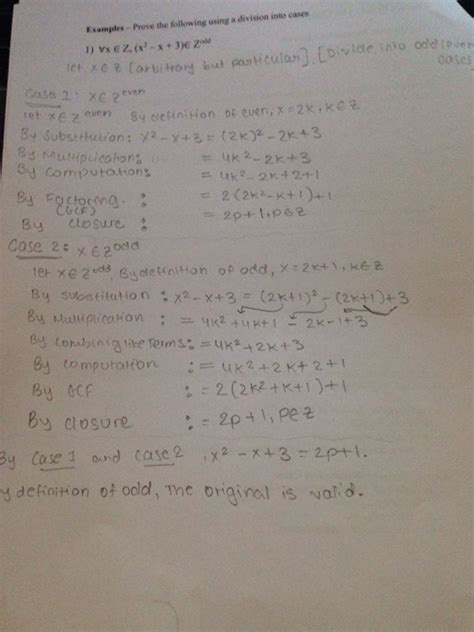 Examples – Prove the following using a division into cases
1) ∀x ∈ Z, (x² – x + 3) ∈ Z^odd
let x ∈ Z [arbitrary but particular]. [Divide into odd/even
cases]
Case 1: x ∈ Z^even
let x ∈ Z^even By definition of even, x = 2k, k ∈ Z
By Substitution: x² - x + 3 = (2k)² - 2k + 3
By Multiplication: = 4k² - 2k + 3
By Computation: = 4k² - 2k + 2 + 1
By Factoring : = 2(2k² - k + 1) + 1
(GCF)
By closure : = 2p + 1, p ∈ Z
Case 2: x ∈ Z^odd
let x ∈ Z^odd, By definition of odd, x = 2k+1, k ∈ Z
By substitution : x² - x + 3 = (2k+1)² - (2k+1) + 3
By Multiplication : = 4k² + 4k + 1 - 2k - 1 + 3
By combining like Terms: = 4k² + 2k + 3
By computation : = 4k² + 2k + 2 + 1
By GCF : = 2(2k² + k + 1) + 1
By closure : = 2p + 1, p ∈ Z
By Case 1 and Case 2, x² - x + 3 = 2p + 1.
y definition of odd, The original is valid.